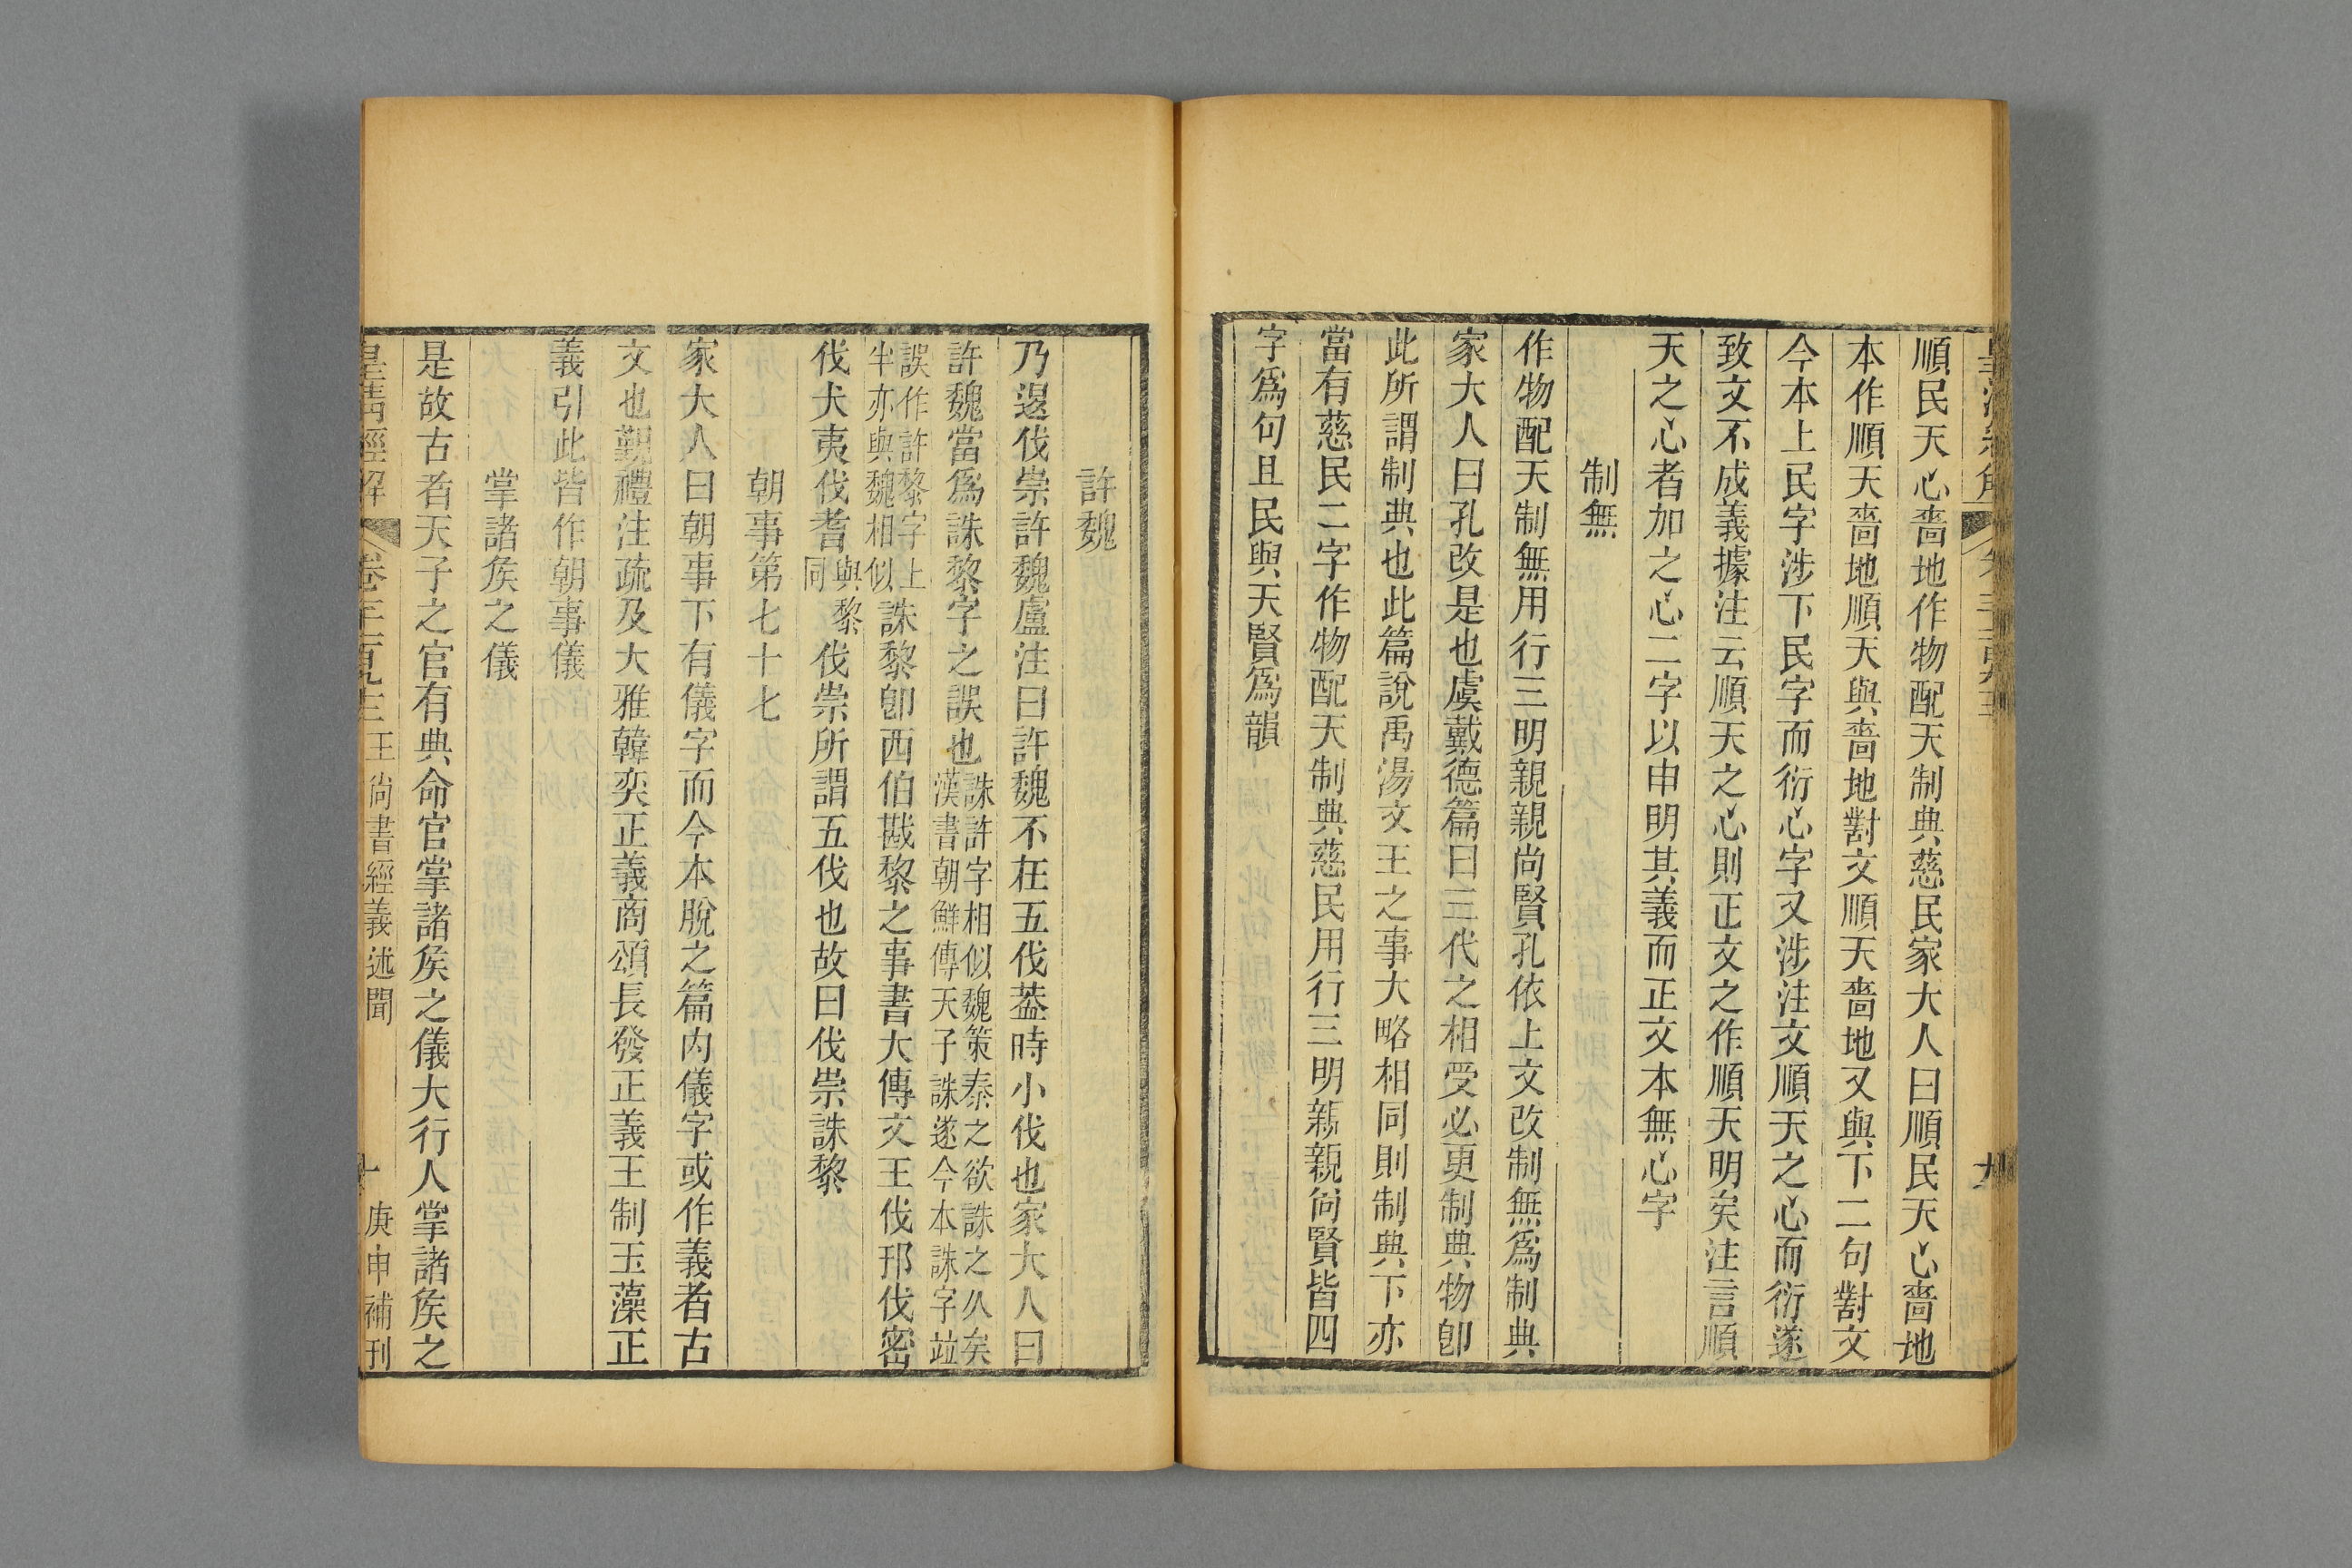 順民天心嗇地作物配天制典慈民家大人曰順民天心嗇地
本作順天嗇地順天與嗇地對文順天嗇地又與下二句對文
今本上民字涉下民字而衍心字又涉注文順天之心而衍遂
致文不成義據注云順天之心則正文之作順天明矣注言順
天之心者加之心二字以申明其義而正文本無心字
制無
作物配天制無用行三明親親尚賢孔依上文改制無爲制典
家大人曰孔改是也虞戴德篇曰三代之相受必更制典物卽
此所謂制典也此篇說禹湯文王之事大略相同則制典下亦
當有慈民二字作物配天制典慈民用行三明親親尚賢皆四
字爲句且民與天賢爲韻
許魏
乃退伐崇許魏盧注曰許魏不在五伐葢時小伐也家大人曰
許魏當爲誅黎字之誤也誅許字相似魏策秦之欲誅之久矣漢書朝鮮傳天子誅遂今本誅字竝
誤作許黎字上半亦與魏相似誅黎卽西伯戡黎之事書大傳文王伐邘伐密
伐犬夷伐耆與黎同伐崇所謂五伐也故曰伐崇誅黎
朝事第七十七
家大人曰朝事下有儀字而今本脫之篇內儀字或作義者古
文也覲禮注疏及大雅韓奕正義商頌長發正義王制玉藻正
義引此皆作朝事儀
掌諸矦之儀
是故古者天子之官有典命官掌諸矦之儀大行人掌諸矦之
皇淸經解 卷千二百九十三 王尚書經義述聞 十 庚申補刊